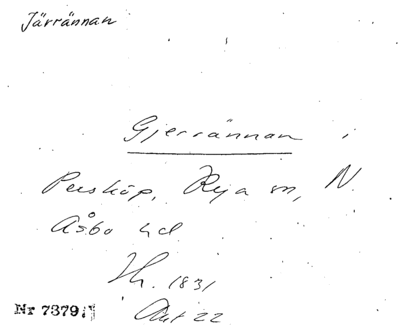 Järrännan
Gjerrännan i
Perstorp, Rya sn, N.
Åsbo hd
Th. 1831
Akt 22
Nr 7379